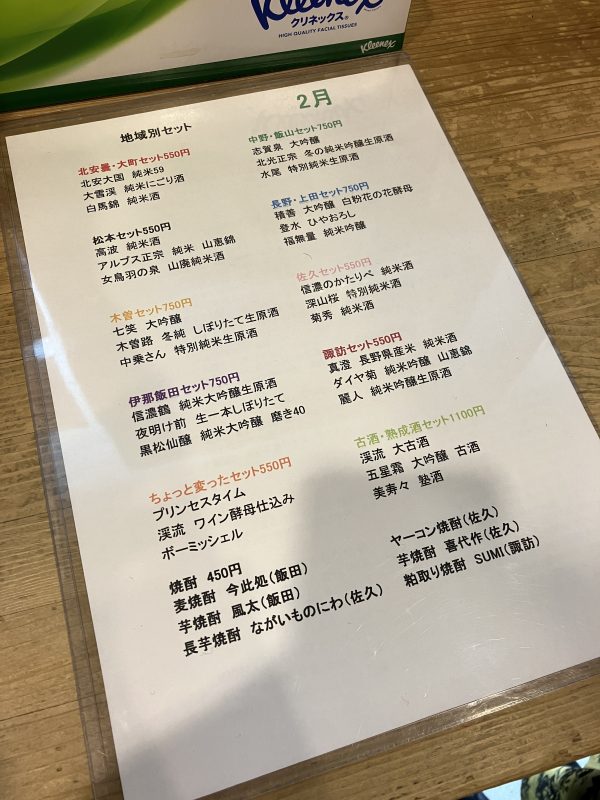 Kleenex
クリネックス®
HIGH QUALITY FACIAL TISSUES
Kleenex
2月
地域別セット
北安曇・大町セット550円
北安大国 純米59
大雪渓 純米にごり酒
白馬錦 純米酒
松本セット550円
高波 純米酒
アルプス正宗 純米 山恵錦
女鳥羽の泉 山廃純米酒
木曽セット750円
七笑 大吟醸
木曽路 冬純 しぼりたて生原酒
中乗さん 特別純米生原酒
伊那飯田セット750円
信濃鶴 純米大吟醸生原酒
夜明け前 生一本しぼりたて
黒松仙醸 純米大吟醸 磨き40
ちょっと変ったセット550円
プリンセスタイム
渓流 ワイン酵母仕込み
ボーミッシェル
焼酎 450円
麦焼酎 今此処(飯田)
芋焼酎 風太(飯田)
長芋焼酎 ながいものにわ(佐久)
中野・飯山セット750円
志賀泉 大吟醸
北光正宗 冬の純米吟醸生原酒
水尾 特別純米生原酒
長野・上田セット750円
積善 大吟醸 白粉花の花酵母
登水 ひやおろし
福無量 純米吟醸
佐久セット550円
信濃のかたりべ 純米酒
深山桜 特別純米酒
菊秀 純米酒
諏訪セット550円
真澄 長野県産米 純米酒
ダイヤ菊 純米吟醸 山恵錦
麗人 純米吟醸生原酒
古酒・熟成酒セット1100円
渓流 大古酒
五星霜 大吟醸 古酒
美寿々 塾酒
ヤーコン焼酎(佐久)
芋焼酎 喜代作(佐久)
粕取り焼酎 SUMI(諏訪)